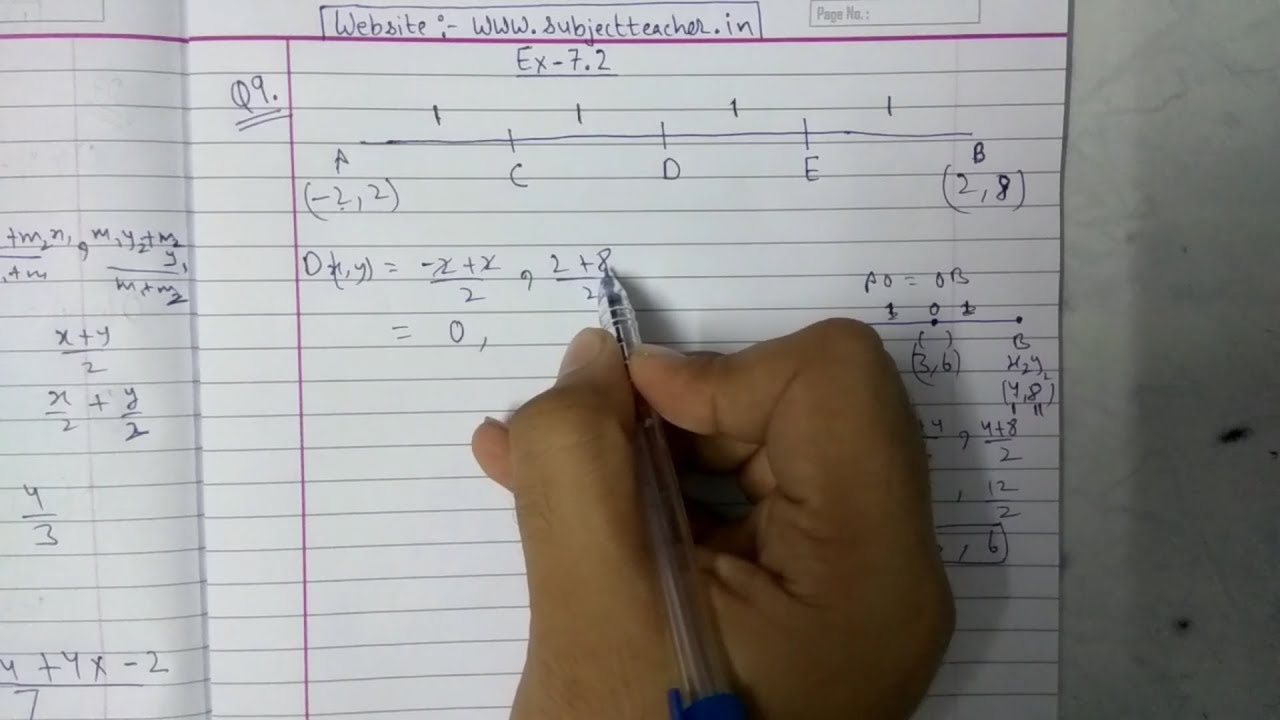 Website :- www.subjectteacher.in
Page No.:
Ex-7.2
Q9.
1 1 1 1
A C D E B
(-2, 2) (2, 8)
+m2x1 , m1y2+m2y1
m1+m2
D(x,y) = -2+2 / 2 , 2+8 / 2
= 0,
x+y / 2
x/2 + y/2
4/3
4+4x-2
7
AO = OB
1 O 1
( ) B
(3,6) x2y2
(4,8)
, 4+8 / 2
, 12 / 2
, 6